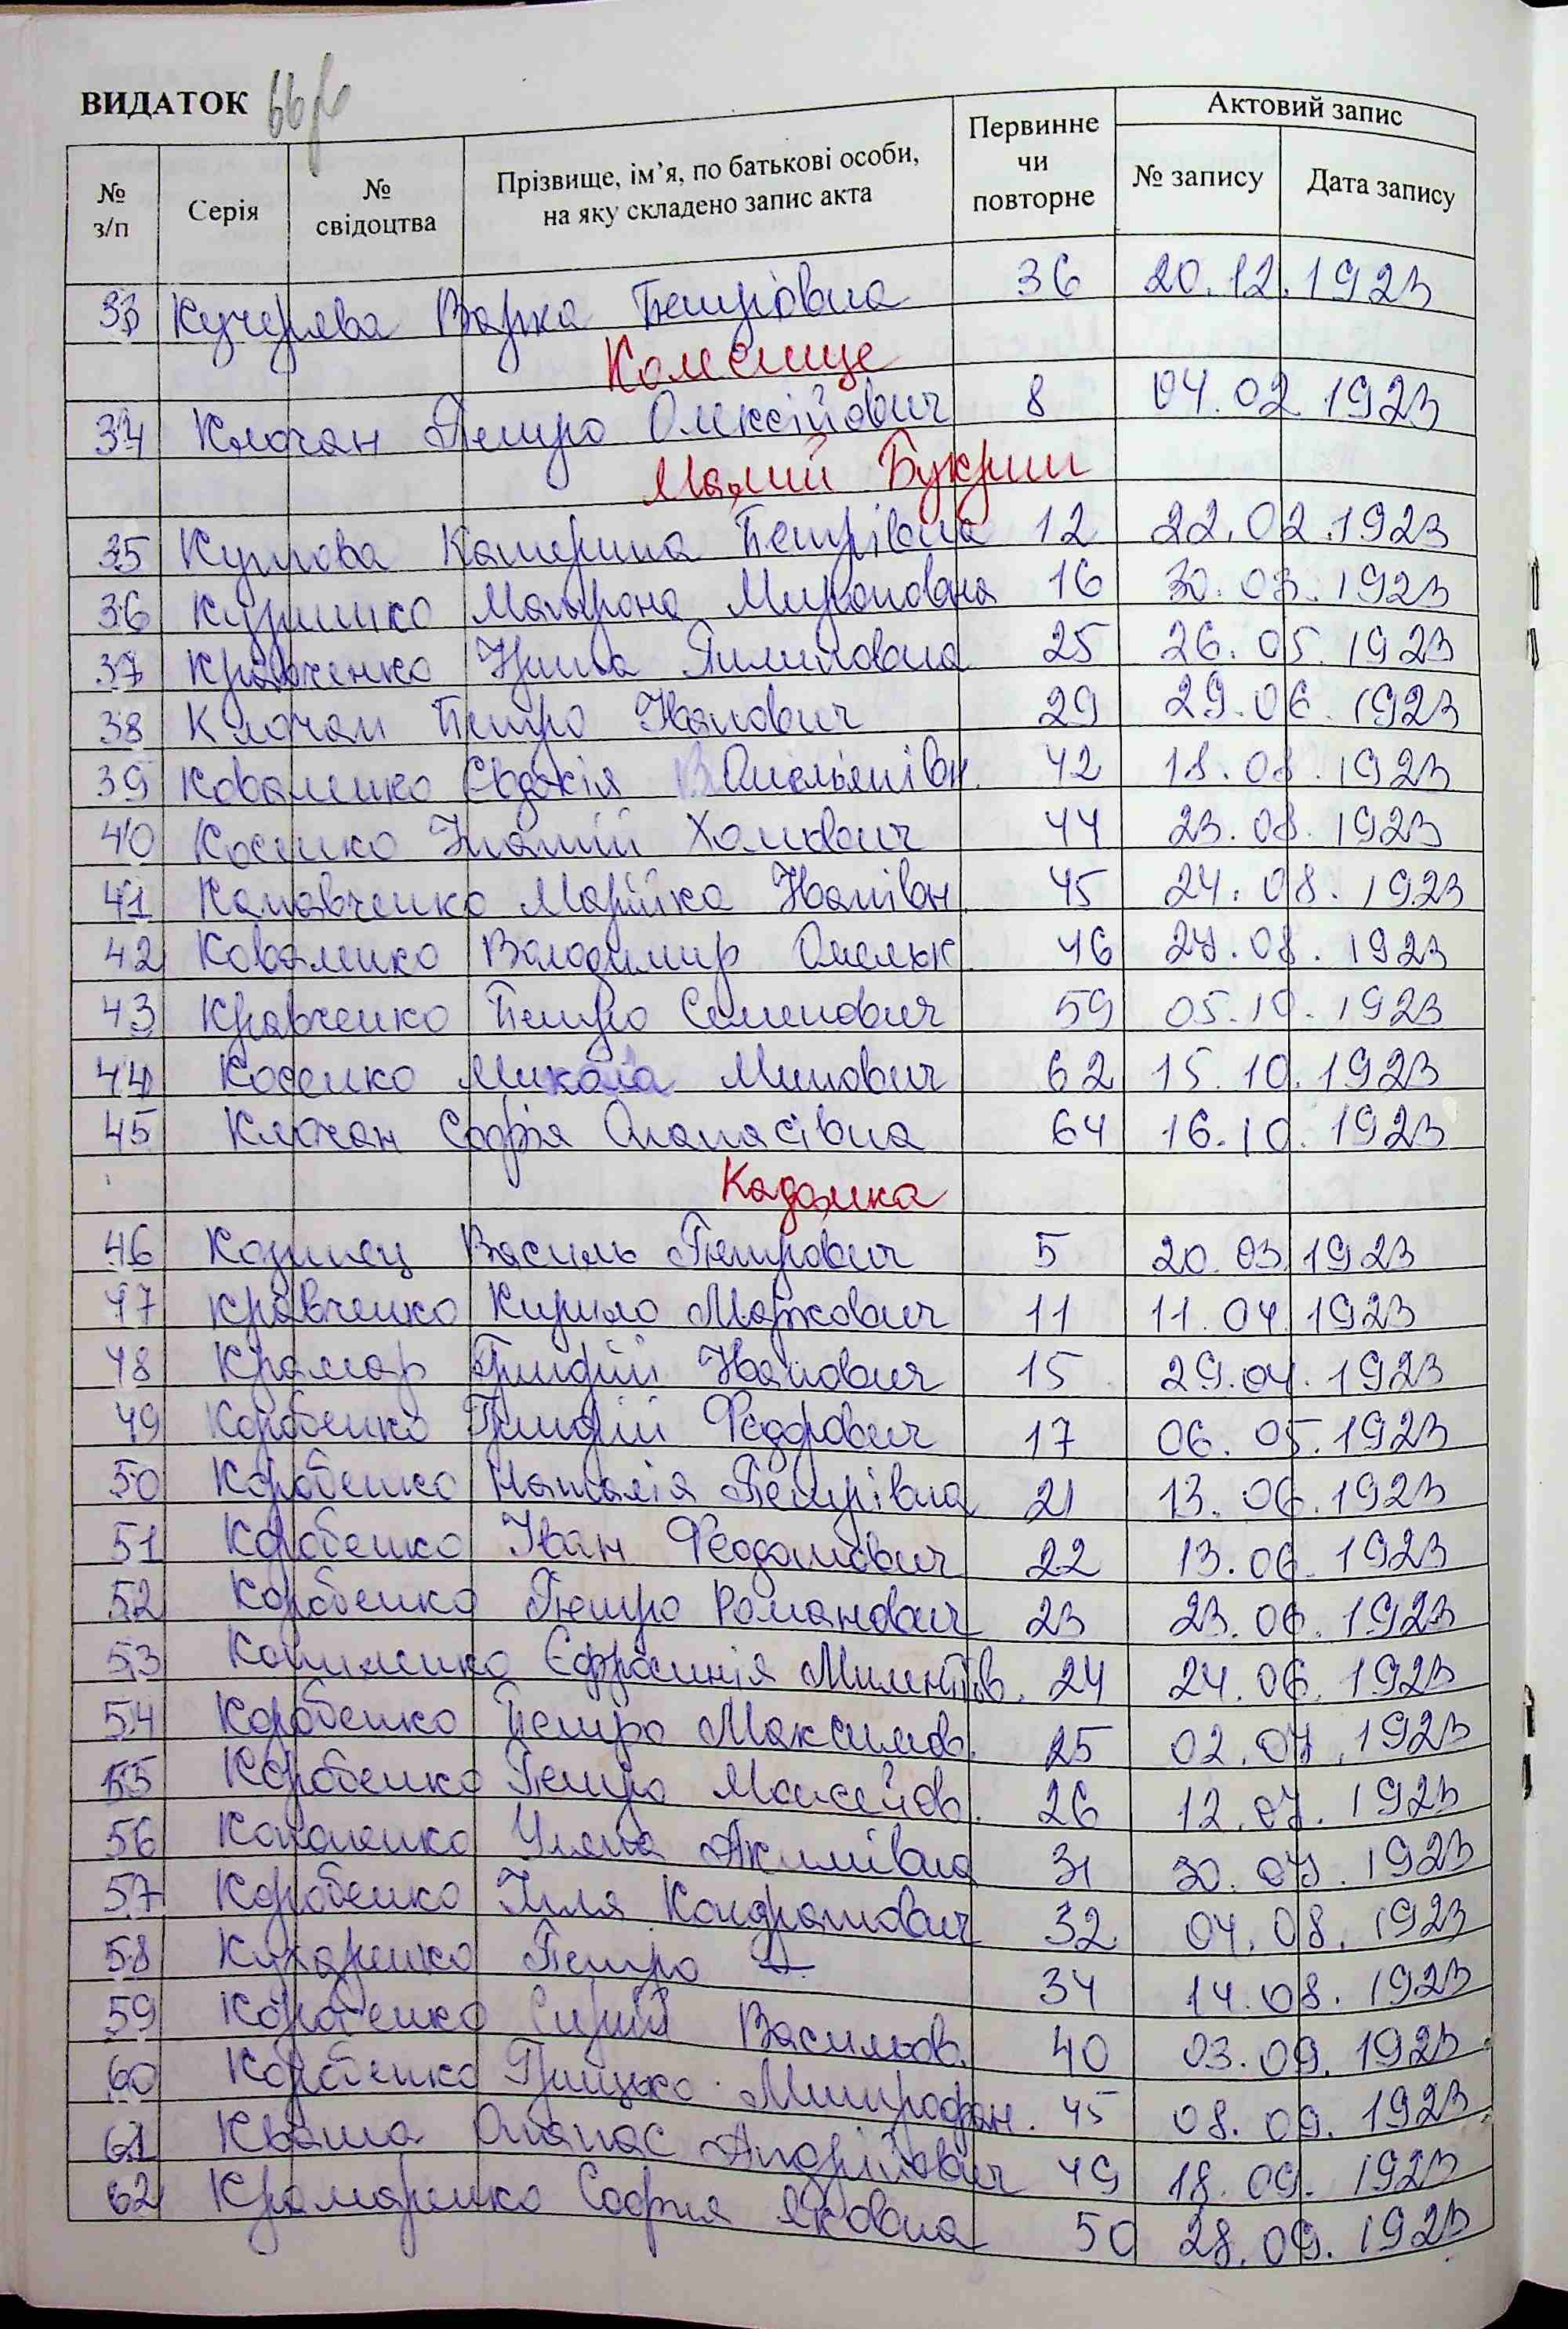 ВИДАТОК 66
№ з/п Серія № свідоцтва Прізвище, ім’я, по батькові особи, на яку складено запис акта Первинне чи повторне Актовий запис № запису Дата запису
33 Кучерява Варка Петрівна 36 20.12.1923
34 Ключан Петро Олексійович 8 04.02 1923
Малий Букрин
35 Катерина Петрівна 12 22.02.1923
36 Мотрона Мироновна 16 30.03.1923
37 Кравченко Ирина Пилиповна 25 26.05.1923
38 Ключан Петро Иванович 29 29.06.1923
39 Коваленко Євдокія Омельянівн. 42 18.08.1923
40 Косенко Хомович 44 23.08.1923
41 Марійка Іванівн. 45 24.08.1923
42 Коваленко Володимир Омельк. 46 24.08.1923
43 Кравченко Петро Семенович 59 05.10.1923
44 Косенко Микола Минович 62 15.10.1923
45 Ключан Софія Опанасівна 64 16.10.1923
Кадомка
46 Козинец Василь Петрович 5 20.03.1923
47 Кравченко Кирило Маркович 11 11.04.1923
48 Крамар Григорій Иванович 15 29.04.1923
49 Коробенко Григорій Федорович 17 06.05.1923
50 Коробенко Наталія Петрівна 21 13.06.1923
51 Коробенко Іван Феодотович 22 13.06.1923
52 Коробенко Петро Романович 23 23.06.1923
53 Єфросинія 24 24.06.1923
54 Коробенко Петро Максимов. 25 02.07.1923
55 Коробенко Петро Моисейов. 26 12.07.1923
56 Кононенко Уляна Акимівна 31 30.07.1923
57 Коробенко Ілля Кондратович 32 04.08.1923
58 Кухаренко Петро 34 14.08.1923
59 Коробенко Василов. 40 03.09.1923
60 Коробенко Грицько Митрофан. 45 08.09.1923
61 Кваша Опанас Андрійович 49 18.09.1923
62 Крамаренко София Яковна 50 28.09.1923